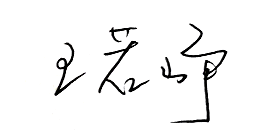 王若峥